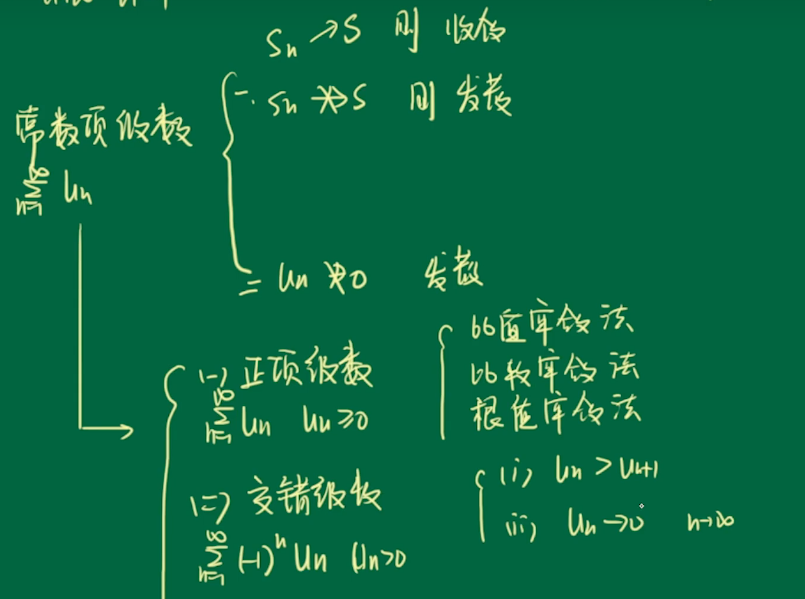 Sn → S 则 收敛
一. Sn ↛ S 则 发散
常数项级数
∑_{n=1}^{∞} Un
二 Un ↛ 0 发散
(一) 正项级数
∑_{n=1}^{∞} Un Un≥0
比值审敛法
比较审敛法
根值审敛法
(二) 交错级数
∑_{n=1}^{∞} (-1)^n Un Un>0
(i) Un > Un+1
(ii) Un→0 n→∞